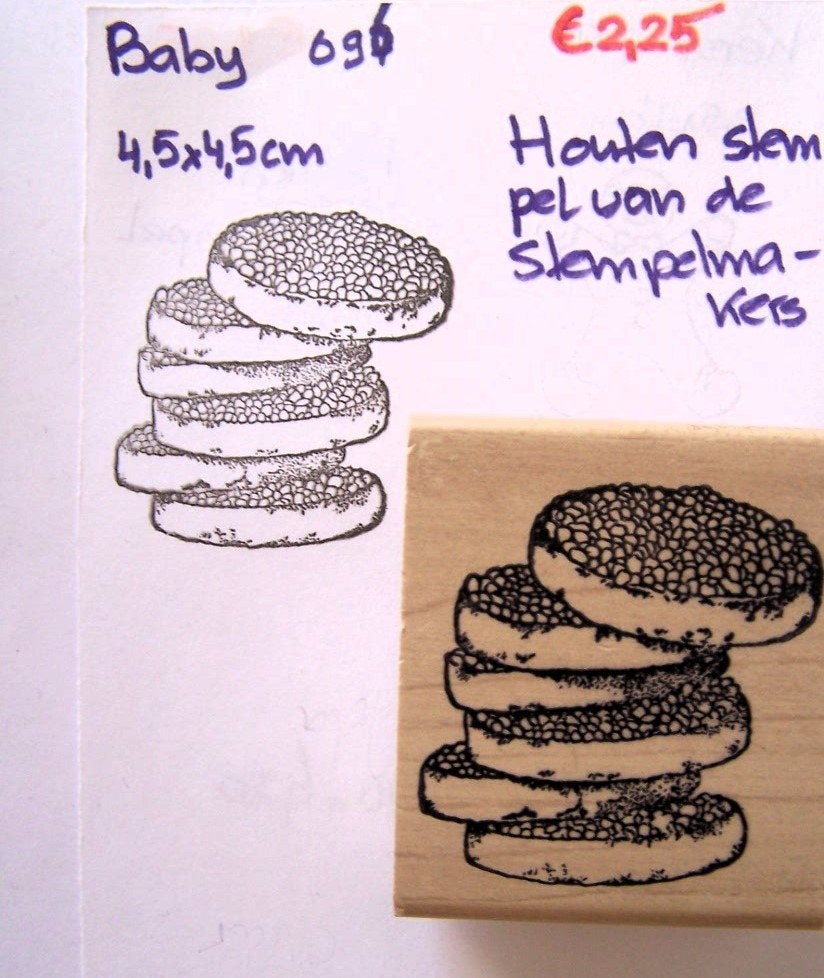 Baby
€2,25
4,5x4,5cm
Houten stem
pel van de
stempelma-
kers